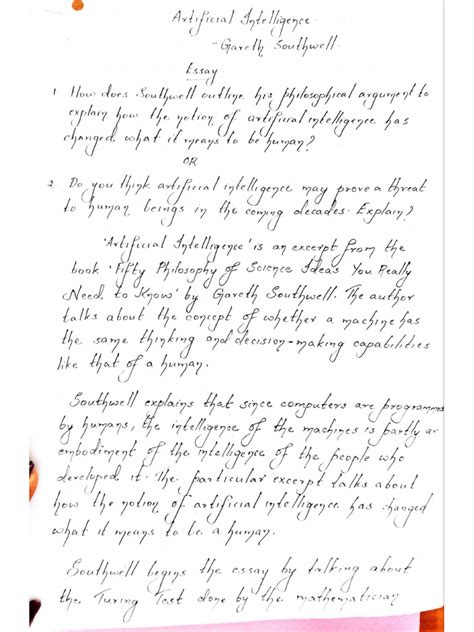 Artificial Intelligence.
- Gareth Southwell.
Essay
1. How does Southwell outline his philosophical argument to
explain how the notion of artificial intelligence has
changed what it means to be human?
OR
2. Do you think artificial intelligence may prove a threat
to human beings in the coming decades. Explain?
'Artificial Intelligence' is an excerpt from the
book 'Fifty Philosophy of Science Ideas You Really
Need to Know' by Gareth Southwell. The author
talks about the concept of whether a machine has
the same thinking and decision-making capabilities
like that of a human.
Southwell explains that since computers are programmed
by humans, the intelligence of the machines is partly an
embodiment of the intelligence of the people who
developed it. The particular excerpt talks about
how the notion of artificial intelligence has changed
what it means to be a human.
Southwell begins the essay by talking about
the Turing Test done by the mathematician